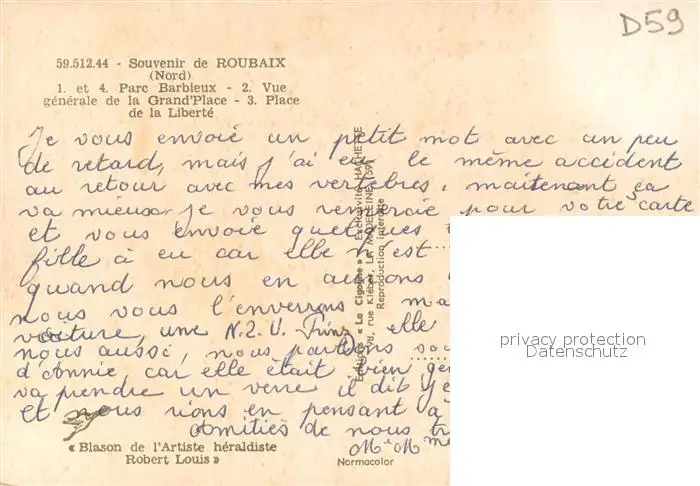 D59
59.512.44 - Souvenir de ROUBAIX
(Nord)
1. et 4. Parc Barbieux - 2. Vue
générale de la Grand'Place - 3. Place
de la Liberté
Je vous envoie un petit mot avec un peu
de retard, mais j'ai eu le même accident
au retour avec mes vertèbres, maitenant ça
va mieux je vous remercie pour votre carte
et vous envoie quelques
fille à eu car elle n'est
quand nous en aurons
nous vous l'enverrons
voiture, une N.S.U. Prinz elle
nous aussi, nous parlons
d'Annie car elle était bien
va prendre un verre il dit
Et nous rions en pensant à
Amitiés de nous
M et Mme
« Blason de l'Artiste héraldiste
Robert Louis »
Normacolor
Editions « La Cigogne » - Exclusivité HACHETTE
98, rue Kléber, LA MADELEINE (59)
Reproduction interdite
privacy protection
Datenschutz